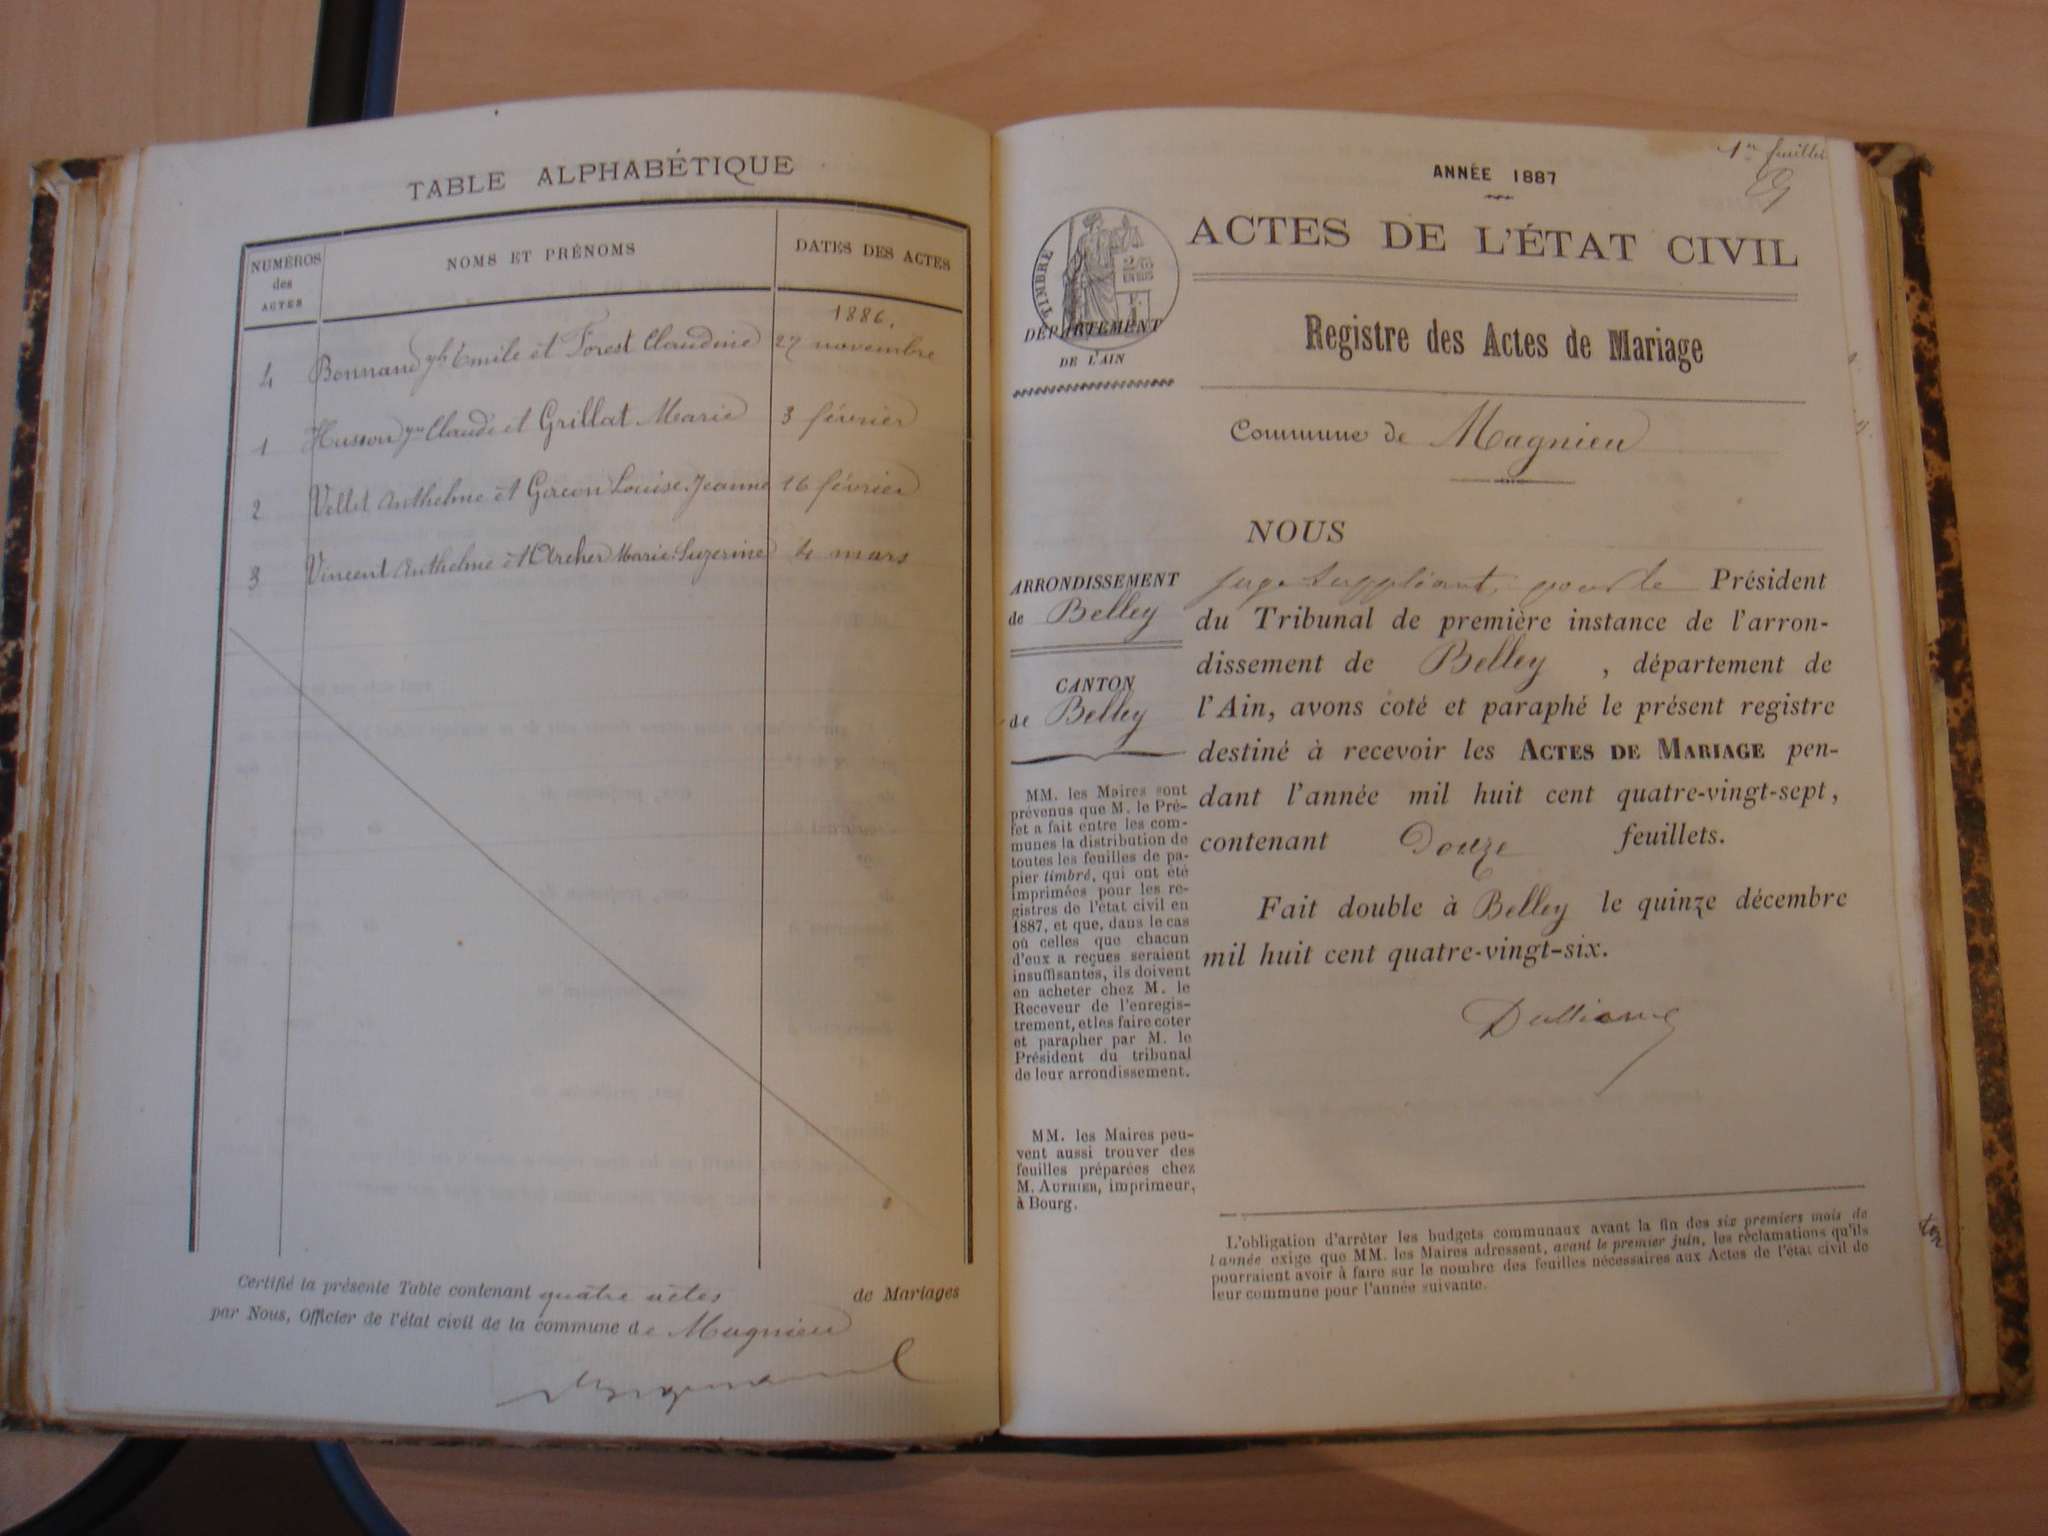 TABLE ALPHABÉTIQUE
NUMÉROS des ACTES
NOMS ET PRÉNOMS
DATES DES ACTES
1886.
4 Bonnand Emile et Forest Claudine 27 novembre
1 Husson Claude et Grillat Marie 3 février
2 Vellet Anthelme et Louise Jeanne 16 février
3 Vincent Anthelme et Marie 4 mars
Certifié la présente Table contenant quatre actes de Mariages
par Nous, Officier de l'état civil de la commune de Magnieu
1er feuillet
ANNÉE 1887
ACTES DE L'ÉTAT CIVIL
TIMBRE
DÉPARTEMENT
DE L'AIN
Registre des Actes de Mariage
Commune de Magnieu
NOUS
ARRONDISSEMENT
de Belley
CANTON
de Belley
MM. les Maires sont
prévenus que M. le Pré-
fet a fait entre les com-
munes la distribution de
toutes les feuilles de pa-
pier timbré, qui ont été
imprimées pour les re-
gistres de l'état civil en
1887, et que, dans le cas
où celles que chacun
d'eux a reçues seraient
insuffisantes, ils doivent
en acheter chez M. le
Receveur de l'enregis-
trement, et les faire coter
et parapher par M. le
Président du tribunal
de leur arrondissement.
MM. les Maires peu-
vent aussi trouver des
feuilles préparées chez
M. AUTHIER, imprimeur,
à Bourg.
juge suppléant, pour le Président
du Tribunal de première instance de l'arron-
dissement de Belley, département de
l'Ain, avons coté et paraphé le présent registre
destiné à recevoir les ACTES DE MARIAGE pen-
dant l'année mil huit cent quatre-vingt-sept,
contenant Douze feuillets.
Fait double à Belley le quinze décembre
mil huit cent quatre-vingt-six.
L'obligation d'arrêter les budgets communaux avant la fin des six premiers mois de
l'année exige que MM. les Maires adressent, avant le premier juin, les réclamations qu'ils
pourraient avoir à faire sur le nombre des feuilles nécessaires aux Actes de l'état civil de
leur commune pour l'année suivante.